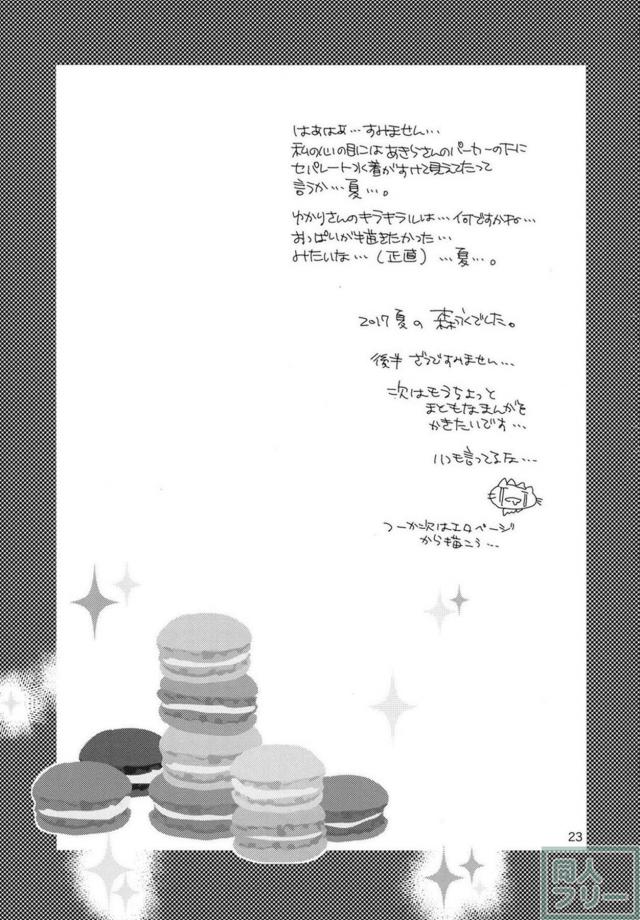 はぁはぁ…すみません…
私の心の目にはあきらさんのパーカーの下に
セパレート水着がすけて見えてたって
言うか…夏…。
ゆかりさんのキラキラルは…何ですかね…
おっぱいが描きたかった…
みたいな…(正直)…夏…。
2017夏の森永でした。
後半ざつですみません…
次はもうちょっと
まともなまんがを
かきたいです…
いつも言ってるな…
つーか次はエロページ
から描こう…
23
同人
フリー